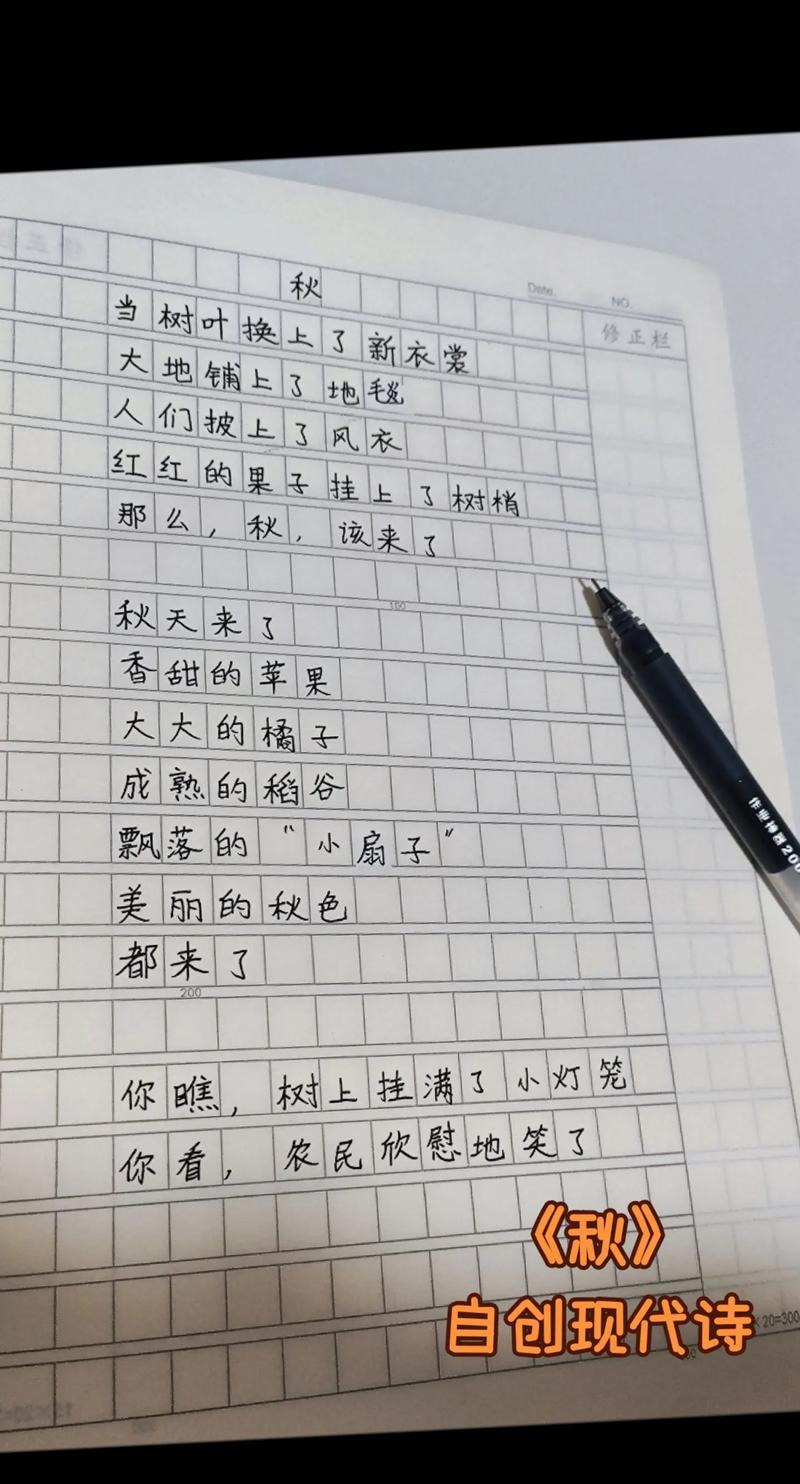 Date.
NO.
修正栏
秋
当树叶换上了新衣裳
大地铺上了地毯
人们披上了风衣
红红的果子挂上了树梢
那么，秋，该来了
100
秋天来了
香甜的苹果
大大的橘子
成熟的稻谷
飘落的“小扇子”
美丽的秋色
都来了
200
你瞧，树上挂满了小灯笼
你看，农民欣慰地笑了
作业神器200
《秋》
自创现代诗
×20=300